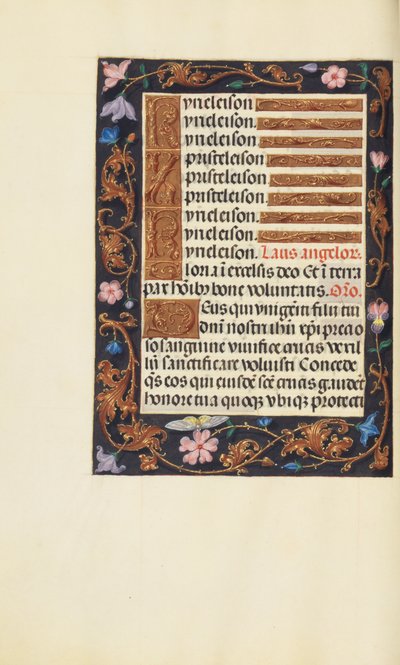 Kyrieleison
yrieleison
yrieleison
Xpristeleison
pristeleison
pristeleison
Kyrieleison
yrieleison
yrieleison. Laus angelor.
loria ī excelsis deo Et ī terra
pax hoībꝫ bone voluntatis. Oro.
Deus qui vnigeniti filii tui
dnī nostri ihū xp̄i precio
so sanguine viuifice crucis vexil
lū sanctificare voluisti Concede
q̄s eos qui eiusdē scē crucis gaudēt
honore tua quoqꝫ vbiqꝫ protecti